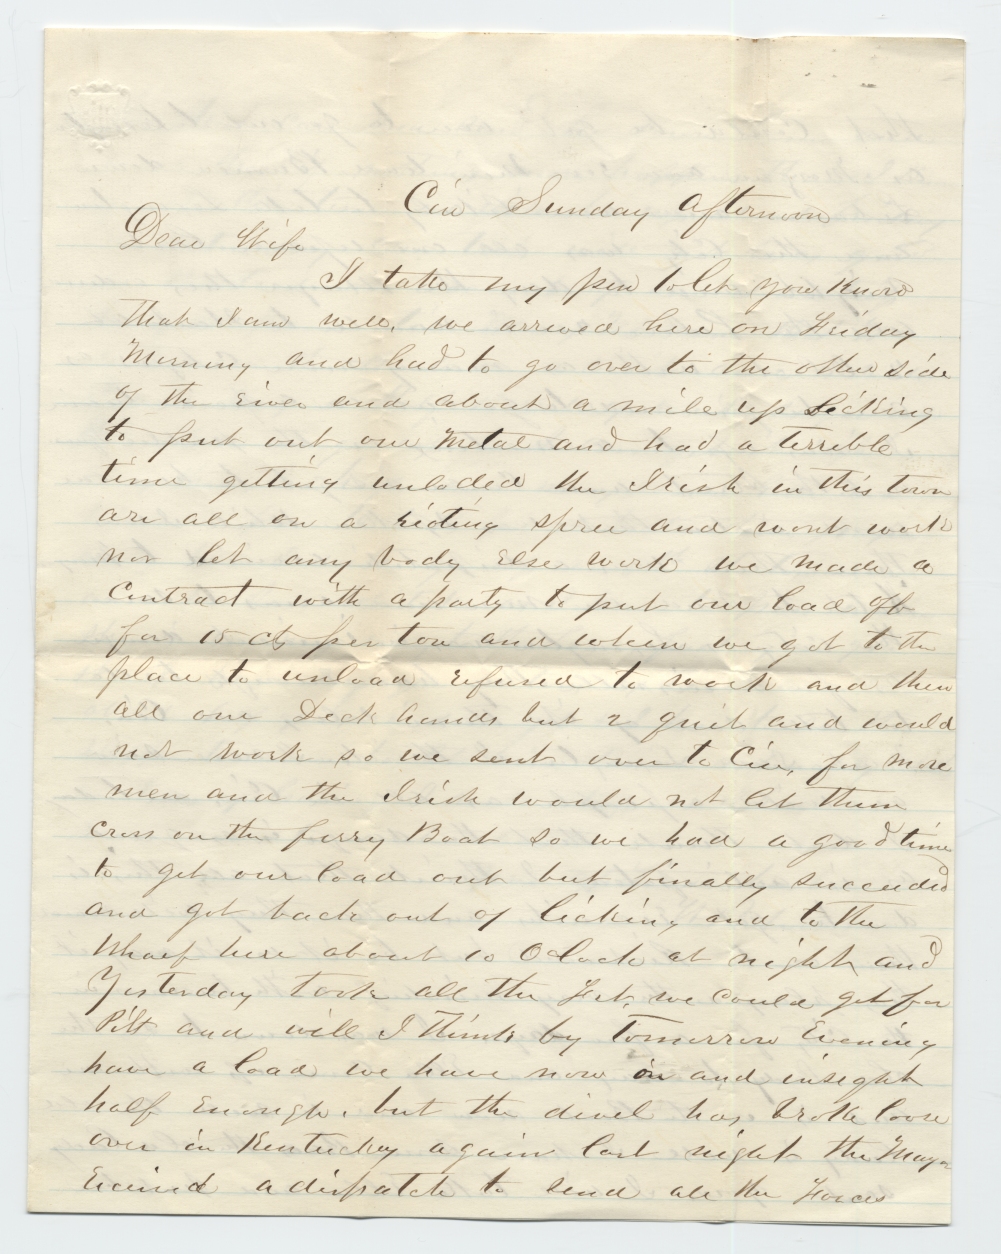 Cin Sunday Afternoon
Dear Wife
I take my pen to let you Know
that I am well, we arrived here on Friday
Morning and had to go over to the other side
of the river and about a mile up Licking
to put out our Metal and had a terrible
time getting unloded the Irish in this town
are all on a rioting spree and wont work
nor let any body Else work we made a
Contract with a party to put our load off
for 15 cts per ton and when we got to the
place to unload refused to work and then
all our Deck hands but 2 quit and would
not work so we sent over to Cin, for more
men and the Irish would not let them
cross on the ferry Boat so we had a good time
to get our load out but finally succeeded
and got back out of licking and to the
Wharf here about 10 Oclock at night and
Yesterday took all the Frt, we could get for
Pitt and will I think by tomorrow Evening
have a load we have now in and insight
half Enough. but the divel has broke loose
over in Kentucky again last night the Mayor
recived a dispatch to send all the Forces